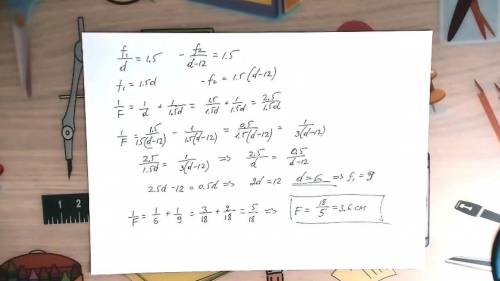 f₁/d = 1.5    - f₂/(d-12) = 1.5
f₁ = 1.5d    -f₂ = 1.5(d-12)
1/F = 1/d + 1/1.5d = 1.5/1.5d + 1/1.5d = 2.5/1.5d
1/F = 1.5/1.5(d-12) - 1/1.5(d-12) = 0.5/1.5(d-12) = 1/3(d-12)
2.5/1.5d = 1/3(d-12) ⇒ 2.5/d = 0.5/(d-12)
2.5d - 12 = 0.5d ⇒ 2d = 12  d = 6 ⇒ f₁ = 9
1/F = 1/6 + 1/9 = 3/18 + 2/18 = 5/18 ⇒ F = 18/5 = 3.6 см
1 2